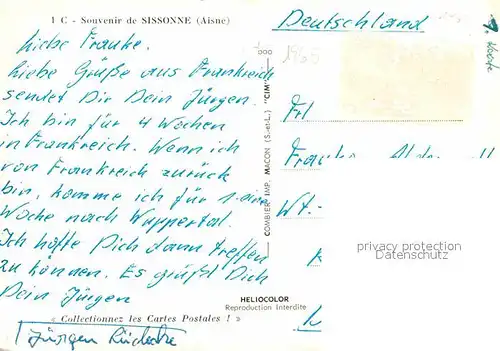 1 C - Souvenir de SISSONNE (Aisne)
Liebe Frauke.
Liebe Grüße aus Frankreich
sendet Dir Dein Jürgen.
Ich bin für 4 Wochen
in Frankreich. Wenn ich
von Frankreich zurück
bin, komme ich für 1 eine
Woche nach Wuppertal.
Ich hoffe Dich dann treffen
zu können. Es grüßt Dich
Dein Jürgen
« Collectionnez les Cartes Postales ! »
Jürgen
COMBIER IMP. MACON (S.-et-L.) "CIM"
HELIOCOLOR
Reproduction Interdite
Deutschland
Frl
Wt.-
privacy protection
Datenschutz